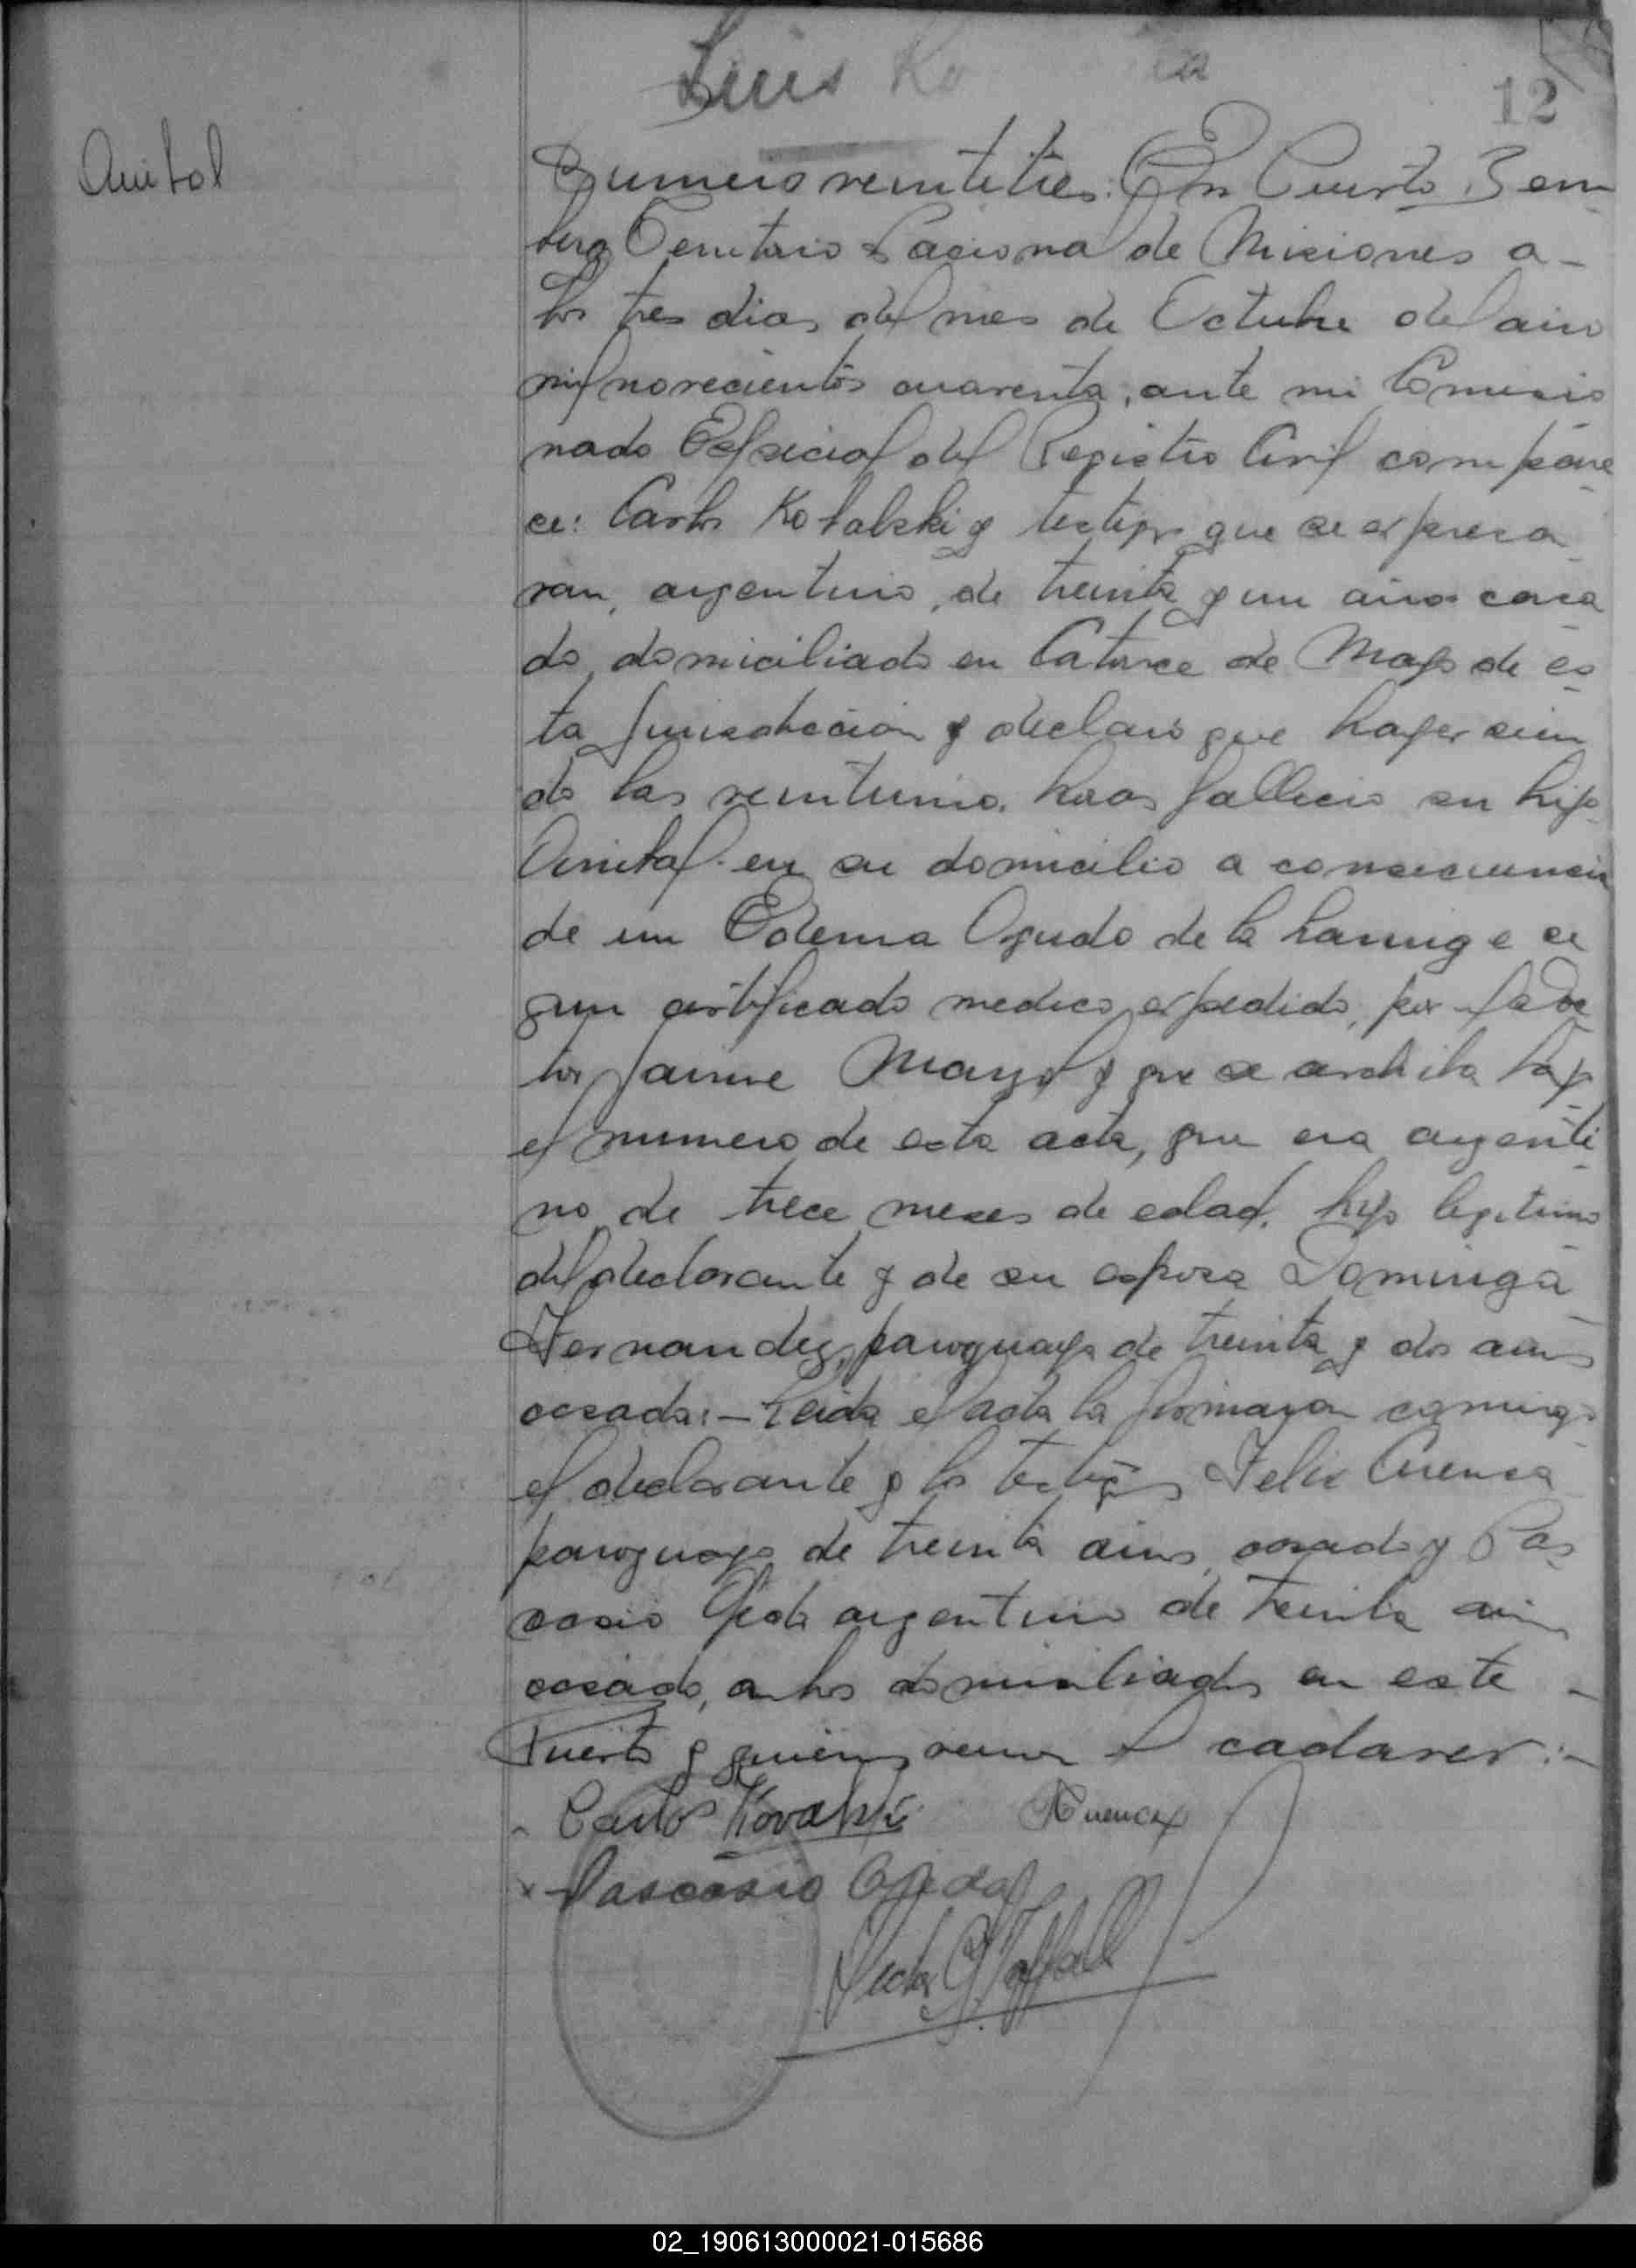 Luis
12
Anibal
Numero veintitres: En Puerto Bem
berg Territorio Nacional de Misiones a-
los tres dias del mes de Octubre del año
mil novecientos cuarenta, ante mi Comisio
nado Especial del Registro Civil compare
ce: Carlos Kobalski y testigos que se expresa
ran, argentino, de treinta y un años casa
do domiciliado en Catorce de Mayo de es
ta Jurisdiccion y declaró que hayer sien
do las veintiuna horas fallecio su hijo
Anibal en su domicilio a consecuencia
de un Edema Agudo de la Laringe se
gun certificado medico expedido, por el Doc
tor Jaime y que se archiba bajo
el numero de esta acta, que era argenti
no de trece meses de edad, hijo legitimo
del declarante y de su esposa Dominga
Fernandez, paraguaya de treinta y dos años
casada:- Leida el acta la firmaron conmigo
el declarante y los testigos Felix Cuenca
paraguayo de treinta años, casado y Pas
casio Ojeda argentino de treinta años
casado, ambos domiciliados en este -
Puerto y quienes vieron el cadaver:-
Carlos Kovalski Cuenca
x Pascasio Ojeda
02_190613000021-015686